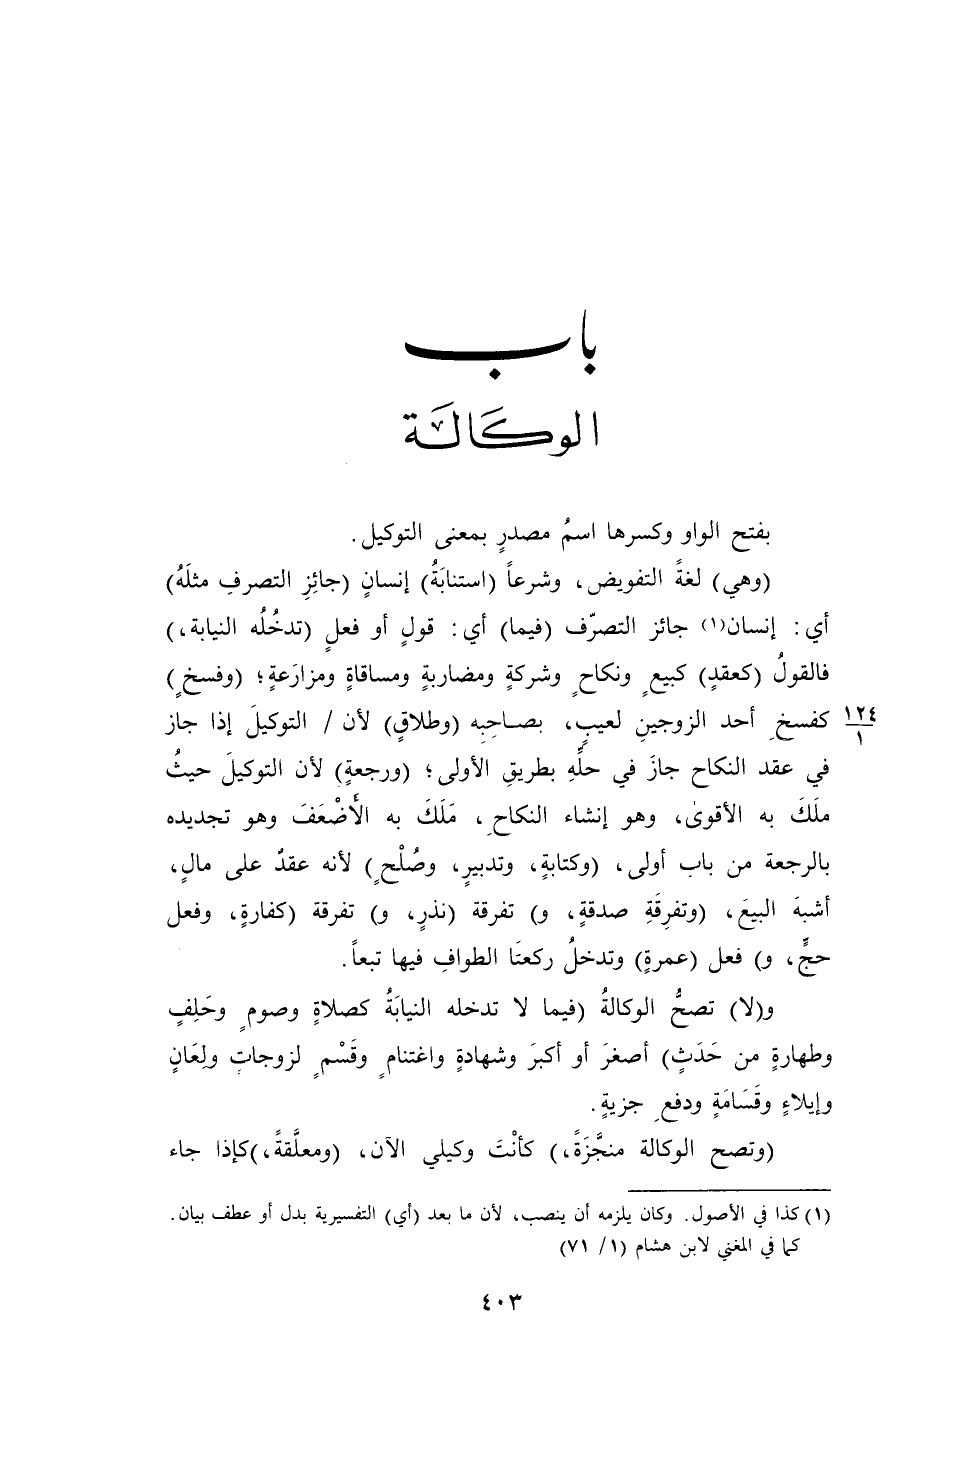 باب
الوكَالَة
بفتح الواو وكسرها اسمُ مصدرٍ بمعنى التوكيل.
(وهي) لغةً التفويض، وشرعاً (استنابَةُ) إنسانٍ (جائِزِ التصرفِ مثلَهُ)
أي: إنسان(١) جائز التصرّف (فيما) أي: قولٍ أو فعلٍ (تدخُلُه النيابة،)
فالقولُ (كعقدٍ) كبيعٍ ونكاحٍ وشركةٍ ومضاربةٍ ومساقاةٍ ومزارَعةٍ؛ (وفسخٍ)
كفسخِ أحد الزوجينِ لعيبٍ، بصاحِبِه (وطلاقٍ) لأن / التوكيلَ إذا جاز
١٢٤
١
في عقد النكاح جازَ في حلِّهِ بطريقِ الأولى؛ (ورجعةٍ) لأن التوكيلَ حيثُ
ملَكَ به الأقوىٰ، وهو إنشاء النكاحِ، مَلَكَ به الأَضْعَفَ وهو تجديده
بالرجعة من باب أولى، (وكتابةٍ، وتدبيرٍ، وصُلْحٍ) لأنه عقدٌ على مالٍ،
أشبهَ البيعَ، (وتفرِقَةِ صدقةٍ، و) تفرقة (نذرٍ، و) تفرقة (كفارةٍ، وفعل
حجٍّ، و) فعل (عمرةٍ) وتدخلُ ركعتَا الطوافِ فيها تبعاً.
و(لا) تصحُّ الوكالةُ (فيما لا تدخله النيابَةُ كصلاةٍ وصومٍ وحَلِفٍ
وطهارةٍ من حَدَثٍ) أصغرَ أو أكبرَ وشهادةٍ واغتنامٍ وقَسْمٍ لزوجاتٍ ولِعَانٍ
وإيلاءٍ وقَسَامَةٍ ودفعِ جزيةٍ.
(وتصح الوكالة منجَّزَةً،) كأنْتَ وكيلي الآن، (ومعلَّقةً،)كإذا جاء
(١) كذا في الأصول. وكان يلزمه أن ينصب، لأن ما بعد (أي) التفسيرية بدل أو عطف بيان.
كما في المغني لابن هشام (١/ ٧١)
٤٠٣